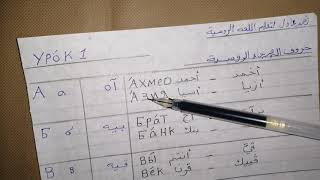 لتعليم اللغة الروسية
УРО́К 1
حروف الهجاء الروسية
А а آه А́хмед أحمد - أحمد
А́зия آسيا - آزيا
Б б بيه Брат أخ -
Банк بنك -
В в فيه Вы أنتم - ڤي
Век قرن - ڤيك